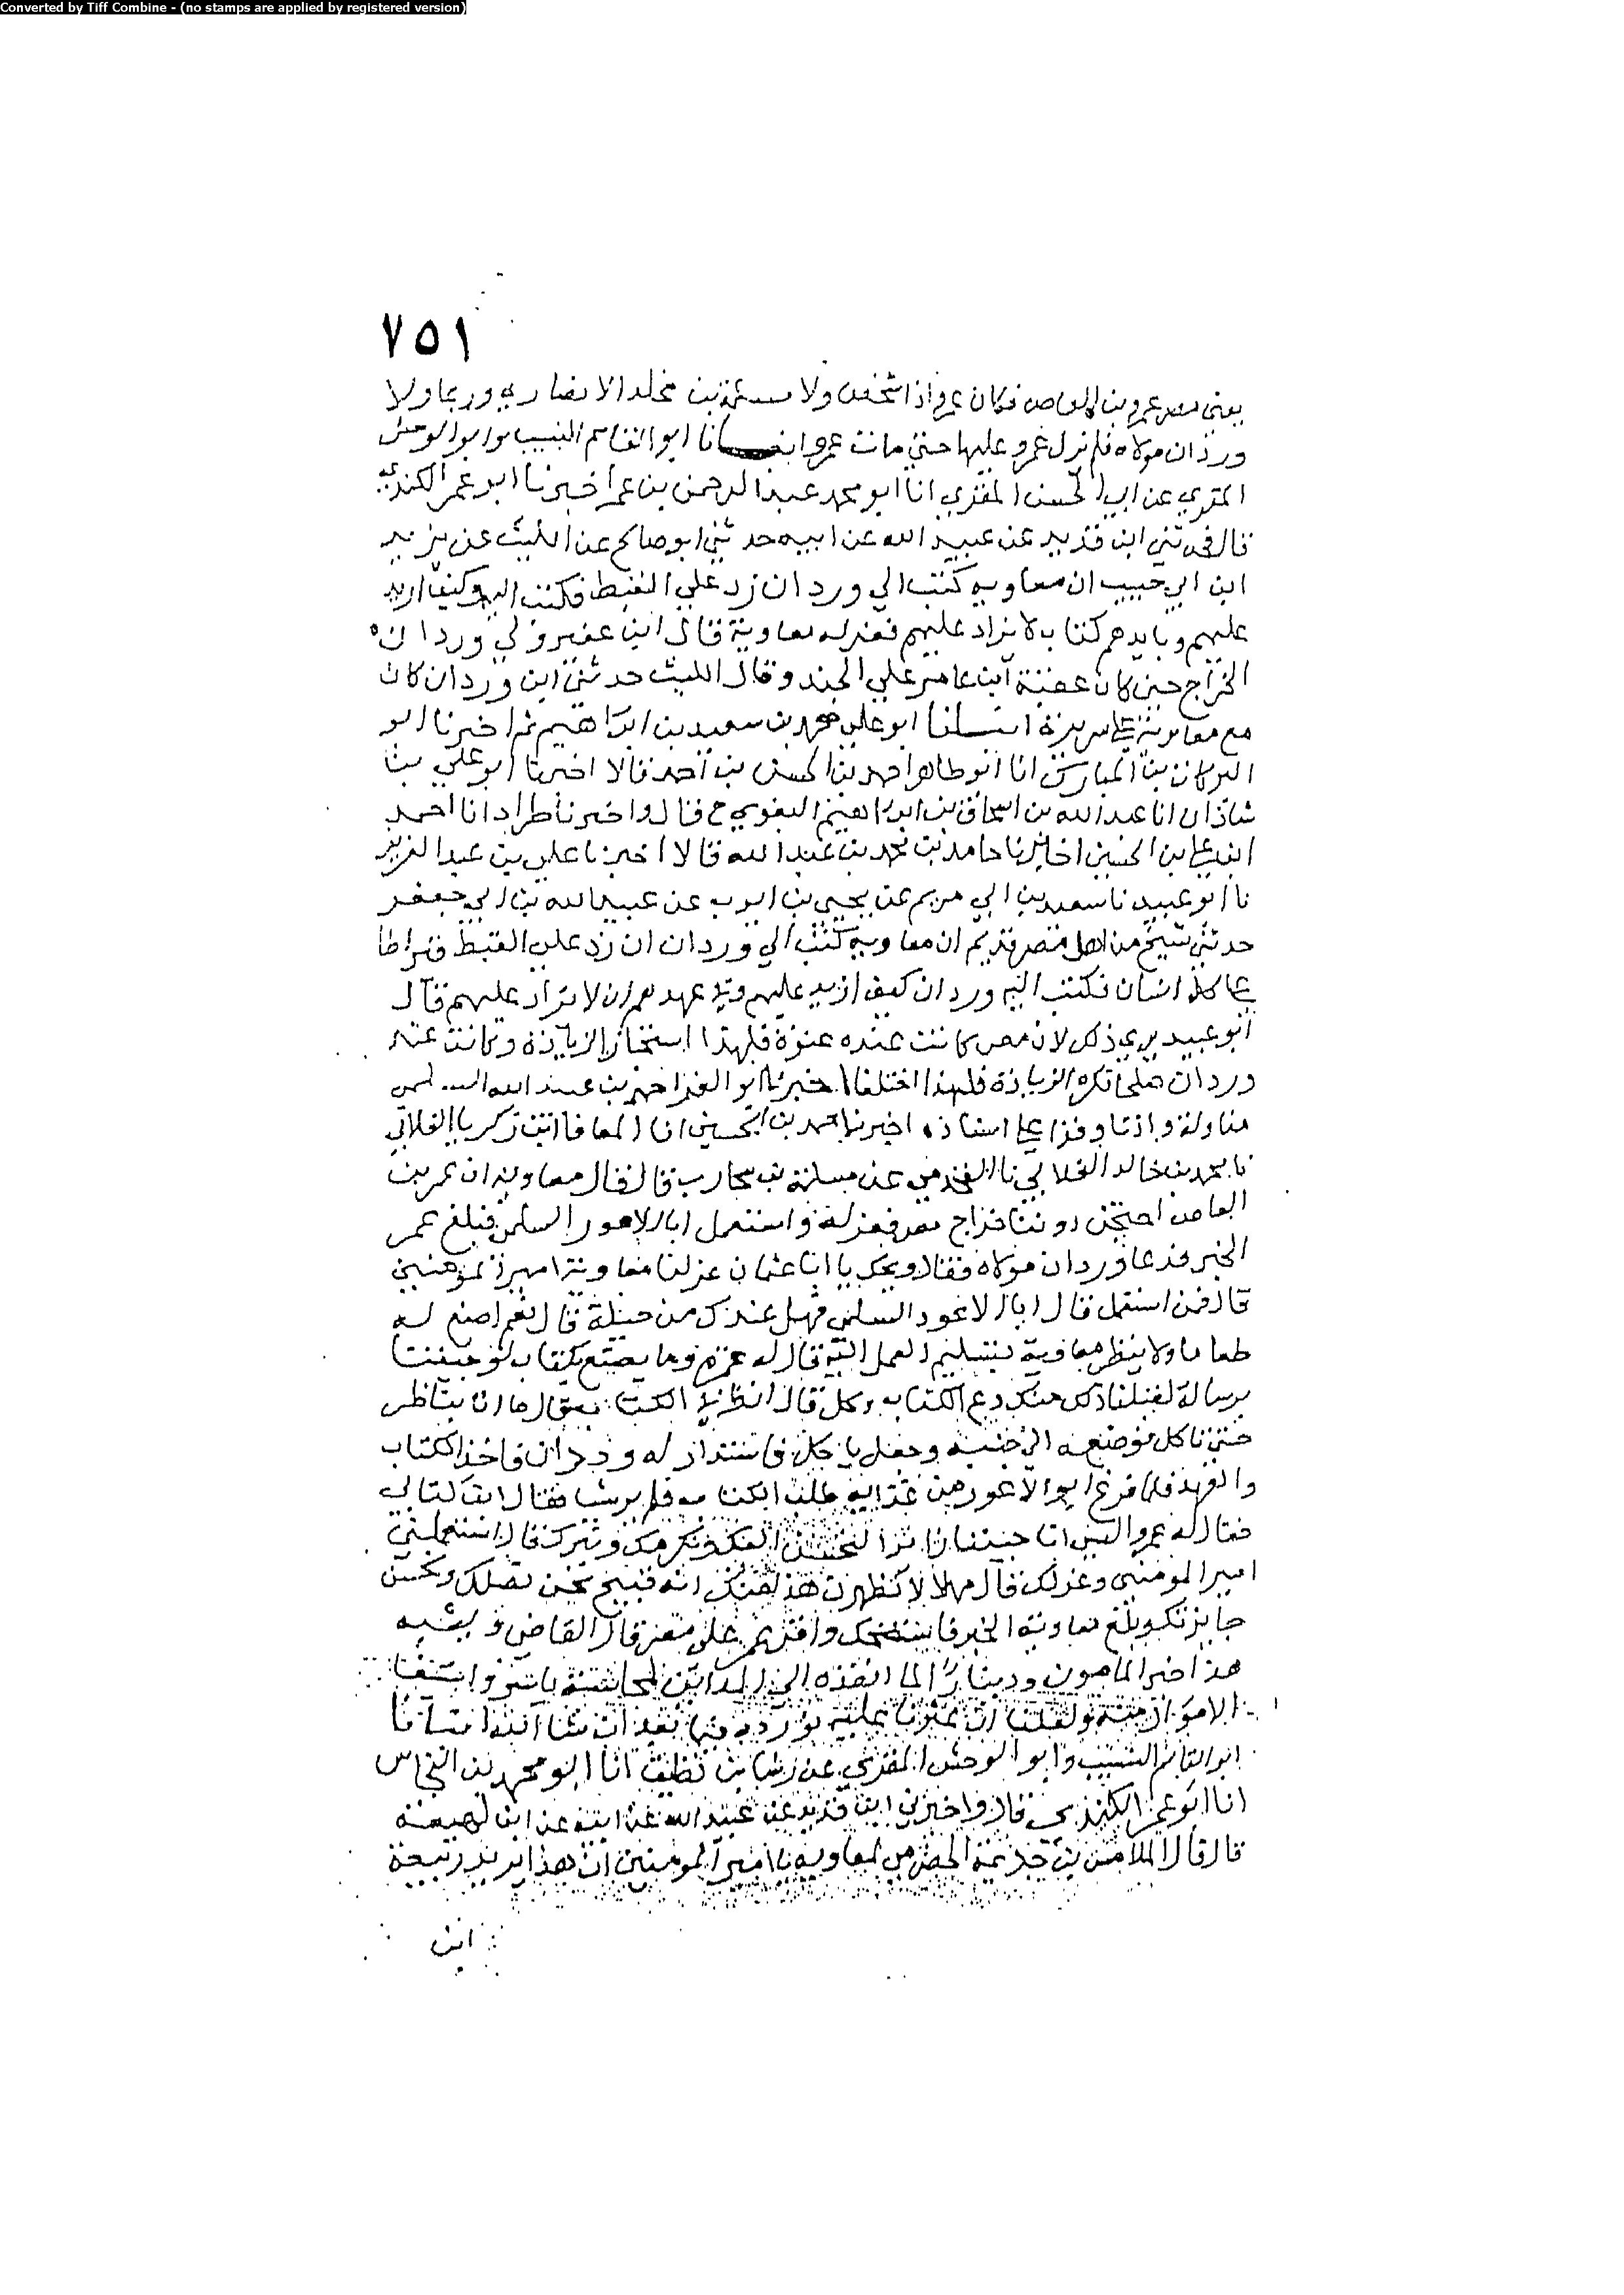 Converted by Tiff Combine - (no stamps are applied by registered version)
٧٥١
يعني مصر عمرو بن العاص فكان عمرو اذا شخص ولا مسلمة بن مخلد الانصاري وربما ولا
وردان مولاه فلم نزل عمرو عليها حتى مات عمرو انبانا ابو القاسم النسيب وابو الوحش
المقري عن ابي الحسن المقري انا ابو محمد عبد الرحمن بن عمر اخبرنا ابو عمر الكندي
قال حدثني ابن قديد عن عبيد الله عن ابيه حدثني ابو صالح عن الليث عن يزيد
ابن ابي حبيب ان معاويه كتب الي وردان زد علي القبط فكتب اليه وكيف ازيد
عليهم وبايديهم كتاب لا يزاد عليهم فعزله معاوية قال ابن عفير ولي وردان
الخراج حين كان عقبة ابن عامر علي الجند وقال الليث حدثني ابن وردان كان
مع معاوية علي سريره انبانا ابو علي محمد بن سعيد بن ابراهيم ثم اخبرنا ابو
البركات بن المبارك انا ابو طاهر احمد بن الحسن بن احمد قالا اخبرنا ابو علي بن
شاذان انا عبد الله بن اسحاق بن ابراهيم البغوي ح قال واخبرنا طراد انا احمد
ابن علي بن الحسين اخبرنا حامد بن محمد بن عبد الله قالا اخبرنا علي بن عبد العزيز
نا ابو عبيد نا سعيد بن ابي مريم عن يحيي بن ايوب عن عبيد الله بن ابي جعفر
حدثني شيخ من اهل مصر قديم ان معاوية كتب الي وردان ان زد علي القبط قيراطا
علي كل انسان فكتب اليه وردان كيف ازيد عليهم وفي عهدهم ان لا يزاد عليهم قال
ابو عبيد يري ذلك لان مصر كانت عنده عنوة فلهذا استجاز الزيادة وكانت عند
وردان صلحا تكره الزيادة فلهذا اختلفا اخبرنا ابو العز احمد بن عبيد الله السلمي
مناولة واذنا وقرا علي اسناده اخبرنا محمد بن الحسين انا المعافا ابن زكريا الغلابي
نا محمد بن خالد الغلابي نا عن مسلمة بن محارب قال قال معاوية ان عمر بن
العاص احتجن دوننا خراج مصر فعزله واستعمل ابا الاعور السلمي فبلغ عمر
الخبر فدعا وردان مولاه فقال ويحك يا ابا عثمان عزلنا معاوية امير المؤمنين
قال فمن استعمل قال ابا الاعور السلمي فهل عندك من حيلة قال نعم اصنع له
طعاما ولا ينظر معاوية بتسليم العمل اليه قال له عمرو وما يصنع بكتاب لو جيتنا
برسالة لقبلنا ذلك منك دع الكتاب وكل قال انظر في الكتاب فقال ما انا بناظر
حتى تاكل فوضعه الي جنبه وجعل ياكل فاستدار له وردان فاخذ الكتاب
والعهد فلما فرغ ابو الاعور من غدايه طلب الكتاب فلم ير شيا فقال اين كتابي
فقال له عمرو اليس انما جيتنا زايرا لنحسن اليك ونكرمك ونبرك قال استعملني
امير المومنين وعزلك قال مهلا لا تظهرن هذا منك انه قبيح نحن نصلك ونحسن
جايزتك وبلغ معاوية الخبر فاستضحك واقر عمر علي مصر قال القاضي وشبه
هذا خبر المامون ودينار لما انفذه الي المداين لمحاسبة ياسر واستيفا
الاموال منه ولعلنا ان عثرنا عليه نورده فيما بعد ان شا الله انبانا
ابو القاسم النسيب وابو الوحش المقري عن رشا بن نظيف انا ابو محمد بن النحاس
انا ابو عمر الكندي قال واخبرني ابن قديد عن عبيد الله عن ابيه عن ابن لهيعة
قال قال الملامس بن جذيمة الحضرمي لمعاويه يا امير المومنين ان هذا يريد ربيعة
ابن